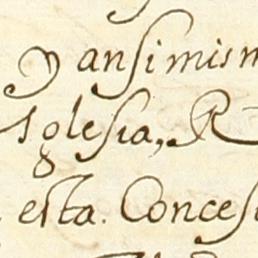 y ansimism
Iglesia, R
esta. Conces